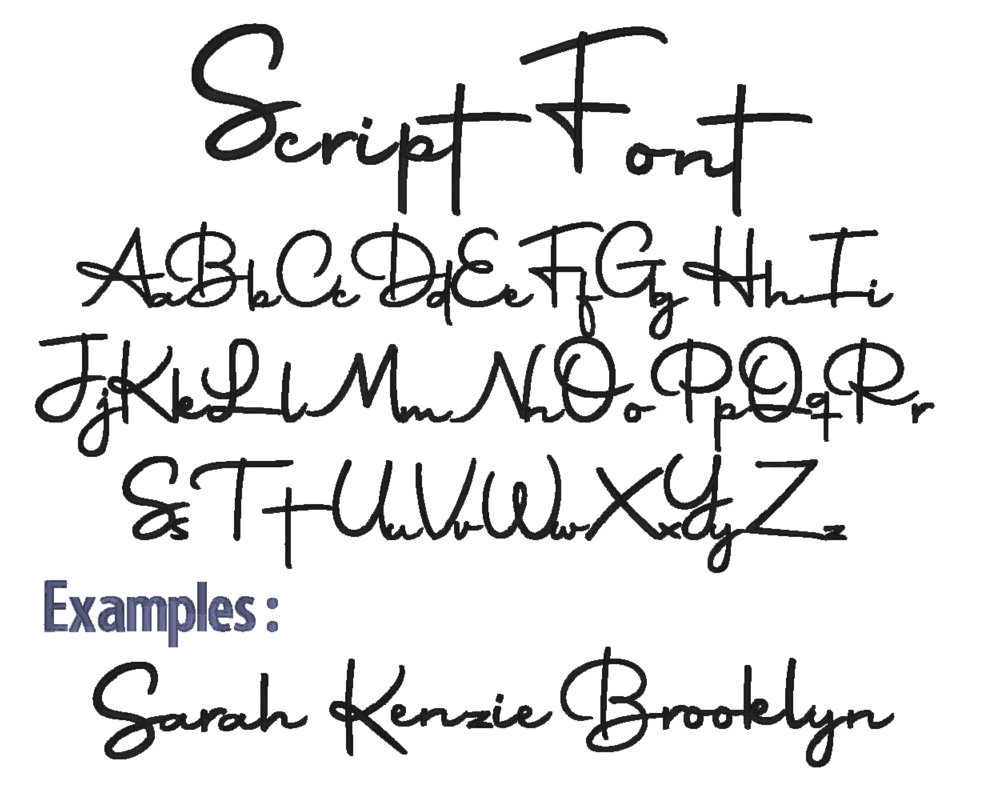 Script Font
AaBbCcDdEeFfGgHhIi
JjKkLlMmNnOoPpQqRr
SsTtUuVvWwXxYyZz
Examples :
Sarah Kenzie Brooklyn